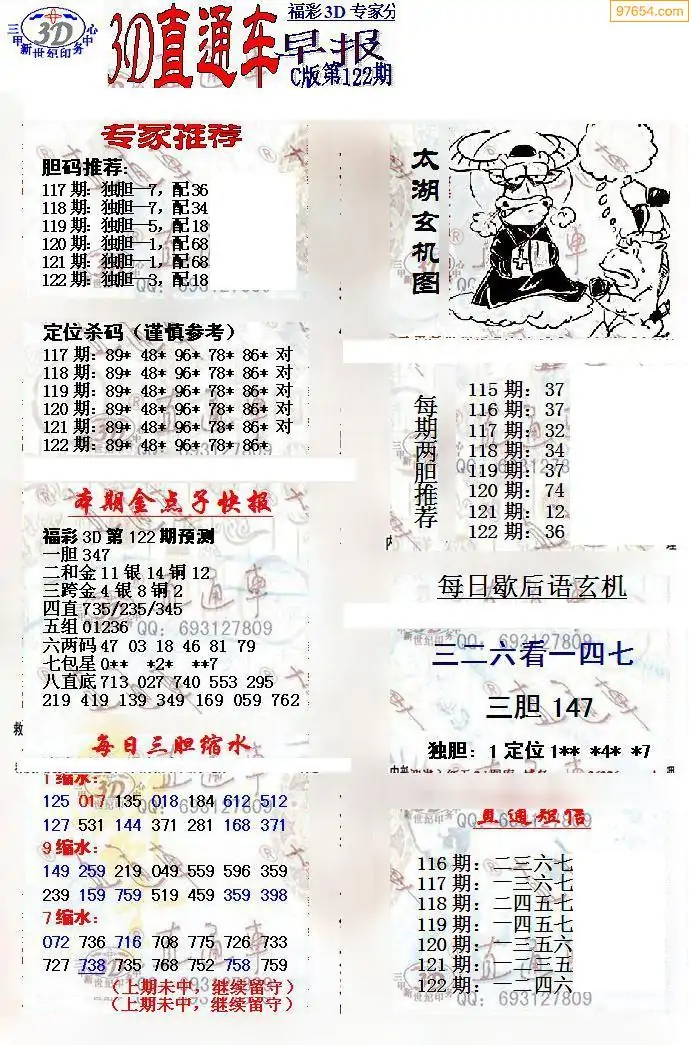 97654.com
三甲 3D 中心
新世纪印务
3D直通车
福彩3D 专家分
早报
C版第122期
专家推荐
胆码推荐:
117 期: 独胆—7, 配36
118 期: 独胆—7, 配34
119 期: 独胆—5, 配18
120 期: 独胆—1, 配68
121 期: 独胆—1, 配68
122 期: 独胆—3, 配18
定位杀码（谨慎参考）
117 期: 89* 48* 96* 78* 86* 对
118 期: 89* 48* 96* 78* 86* 对
119 期: 89* 48* 96* 78* 86* 对
120 期: 89* 48* 96* 78* 86* 对
121 期: 89* 48* 96* 78* 86* 对
122 期: 89* 48* 96* 78* 86*
QQ: 693127809
本期金点子快报
福彩 3D 第 122 期预测
一胆 347
二和金 11 银 14 铜 12
三跨金 4 银 8 铜 2
四直 735/235/345
五组 01236
QQ: 693127809
六两码 47 03 18 46 81 79
七包星 0** *2* **7
八直底 713 027 740 553 295
219 419 139 349 169 059 762
每日三胆缩水
1 缩水:
125 017 135 018 184 612 512
127 531 144 371 281 168 371
9 缩水:
149 259 219 049 559 596 359
239 159 759 519 459 359 398
7 缩水:
072 736 716 708 775 726 733
727 738 735 768 752 758 759
（上期未中, 继续留守）
（上期未中, 继续留守）
太湖玄机图
每期两胆推荐
115 期: 37
116 期: 37
117 期: 32
118 期: 34
119 期: 37
120 期: 74
121 期: 12
122 期: 36
每日歇后语玄机
三二六看一四七
三胆 147
独胆: 1 定位 1** *4* *7
直通短信
116 期: 二三六七
117 期: 一三六七
118 期: 二四五七
119 期: 一四五七
120 期: 一三五六
121 期: 一二三五
122 期: 一二四六
QQ: 693127809